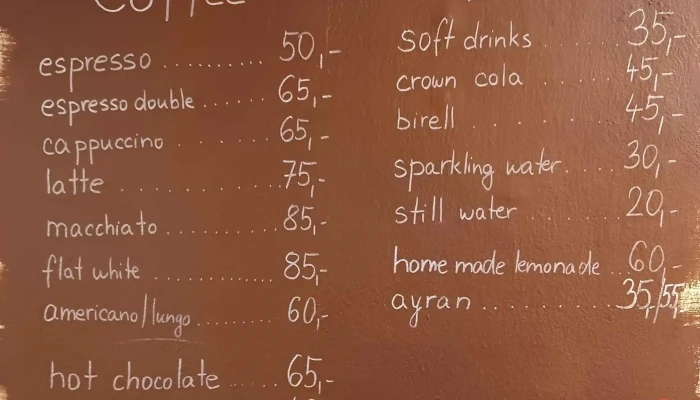 Coffee
espresso .......... 50,-
espresso double ...... 65,-
cappuccino ...... 65,-
latte .......... 75,-
macchiato .......... 85,-
flat white .......... 85,-
americano/lungo .......... 60,-
hot chocolate ...... 65,-
soft drinks ...... 35,-
crown cola ...... 45,-
birell ...... 45,-
sparkling water ...... 30,-
still water ...... 20,-
home made lemonade ... 60,-
ayran .......... 35,-/55,-